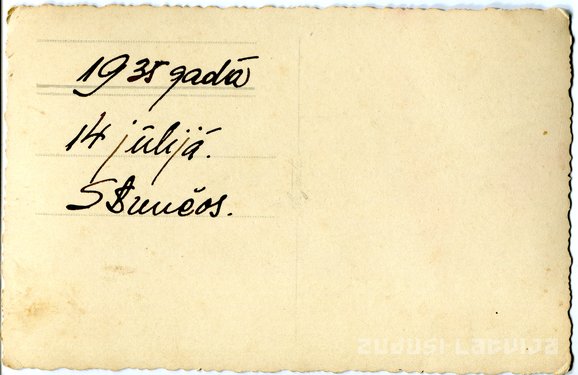 1935 gadā
14 jūlijā.
Strenčos.
zudusi Latvija